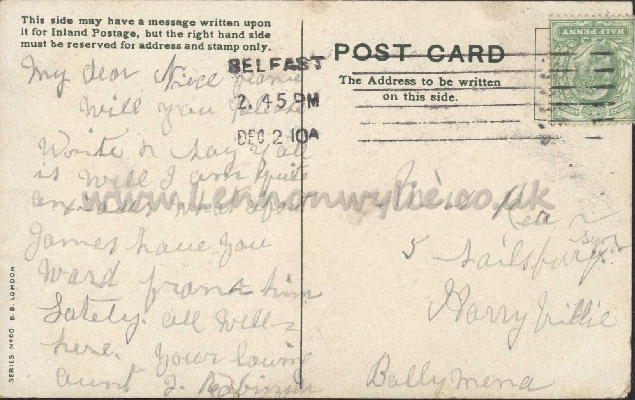 This side may have a message written upon
it for Inland Postage, but the right hand side
must be reserved for address and stamp only.
My dear Niece
Will you please
Write & say if all
is well I am quite
anxious what about
James have you
Ward from him
Lately. all well
here. Your loving
aunt J. Robinson
BELFAST
2.45 PM
DEC 2 10A
POST CARD
The Address to be written
on this side.
HALF PENNY
Rea
5 Sailsbury
Harryville
Ballymena
SERIES Nº60 B.B. LONDON
www.Lennonwylie.co.uk